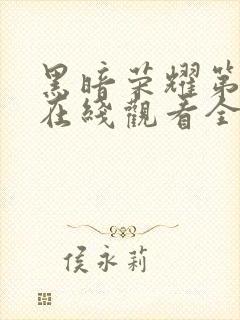 黑暗荣耀第
在綫觀看全
侯永莉